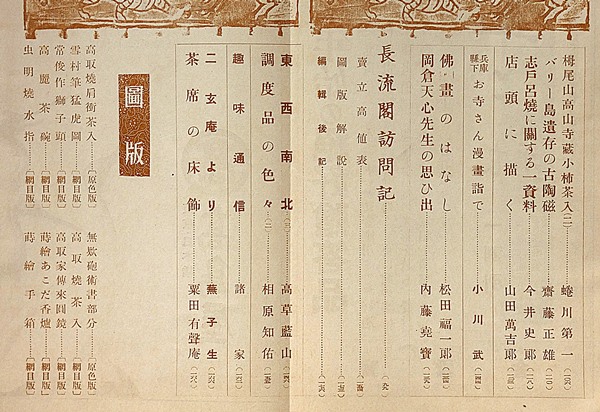 栂尾山高山寺蔵小柿茶入(二)……蜷川第一
バリー島遺存の古陶磁……齋藤正雄
志戸呂燒に關する一資料……今井史郞
店頭に描く……山田萬吉郞
兵庫縣下お寺さん漫畫詣で……小川武
佛畫のはなし……松田福一郞
岡倉天心先生の思ひ出……內藤堯寶
長流閣訪問記
賣立高値表
圖版解說
編輯後記
東西南北……高草藍山
調度品の色々(二)……相原知佑
趣味通信……諸家
二玄庵より……蕪子生
茶席の床飾……粟田有聲庵
圖版
高取燒肩衝茶入……〔原色版〕
雪村筆猛虎圖……〔網目版〕
常俊作獅子頭……〔網目版〕
高麗茶碗……〔網目版〕
虫明燒水指……〔網目版〕
無欺砲術書部分……〔原色版〕
高取燒茶入……〔網目版〕
高取家傳來圓鏡……〔網目版〕
蒔繪あこだ香爐……〔網目版〕
蒔繪手箱……〔網目版〕